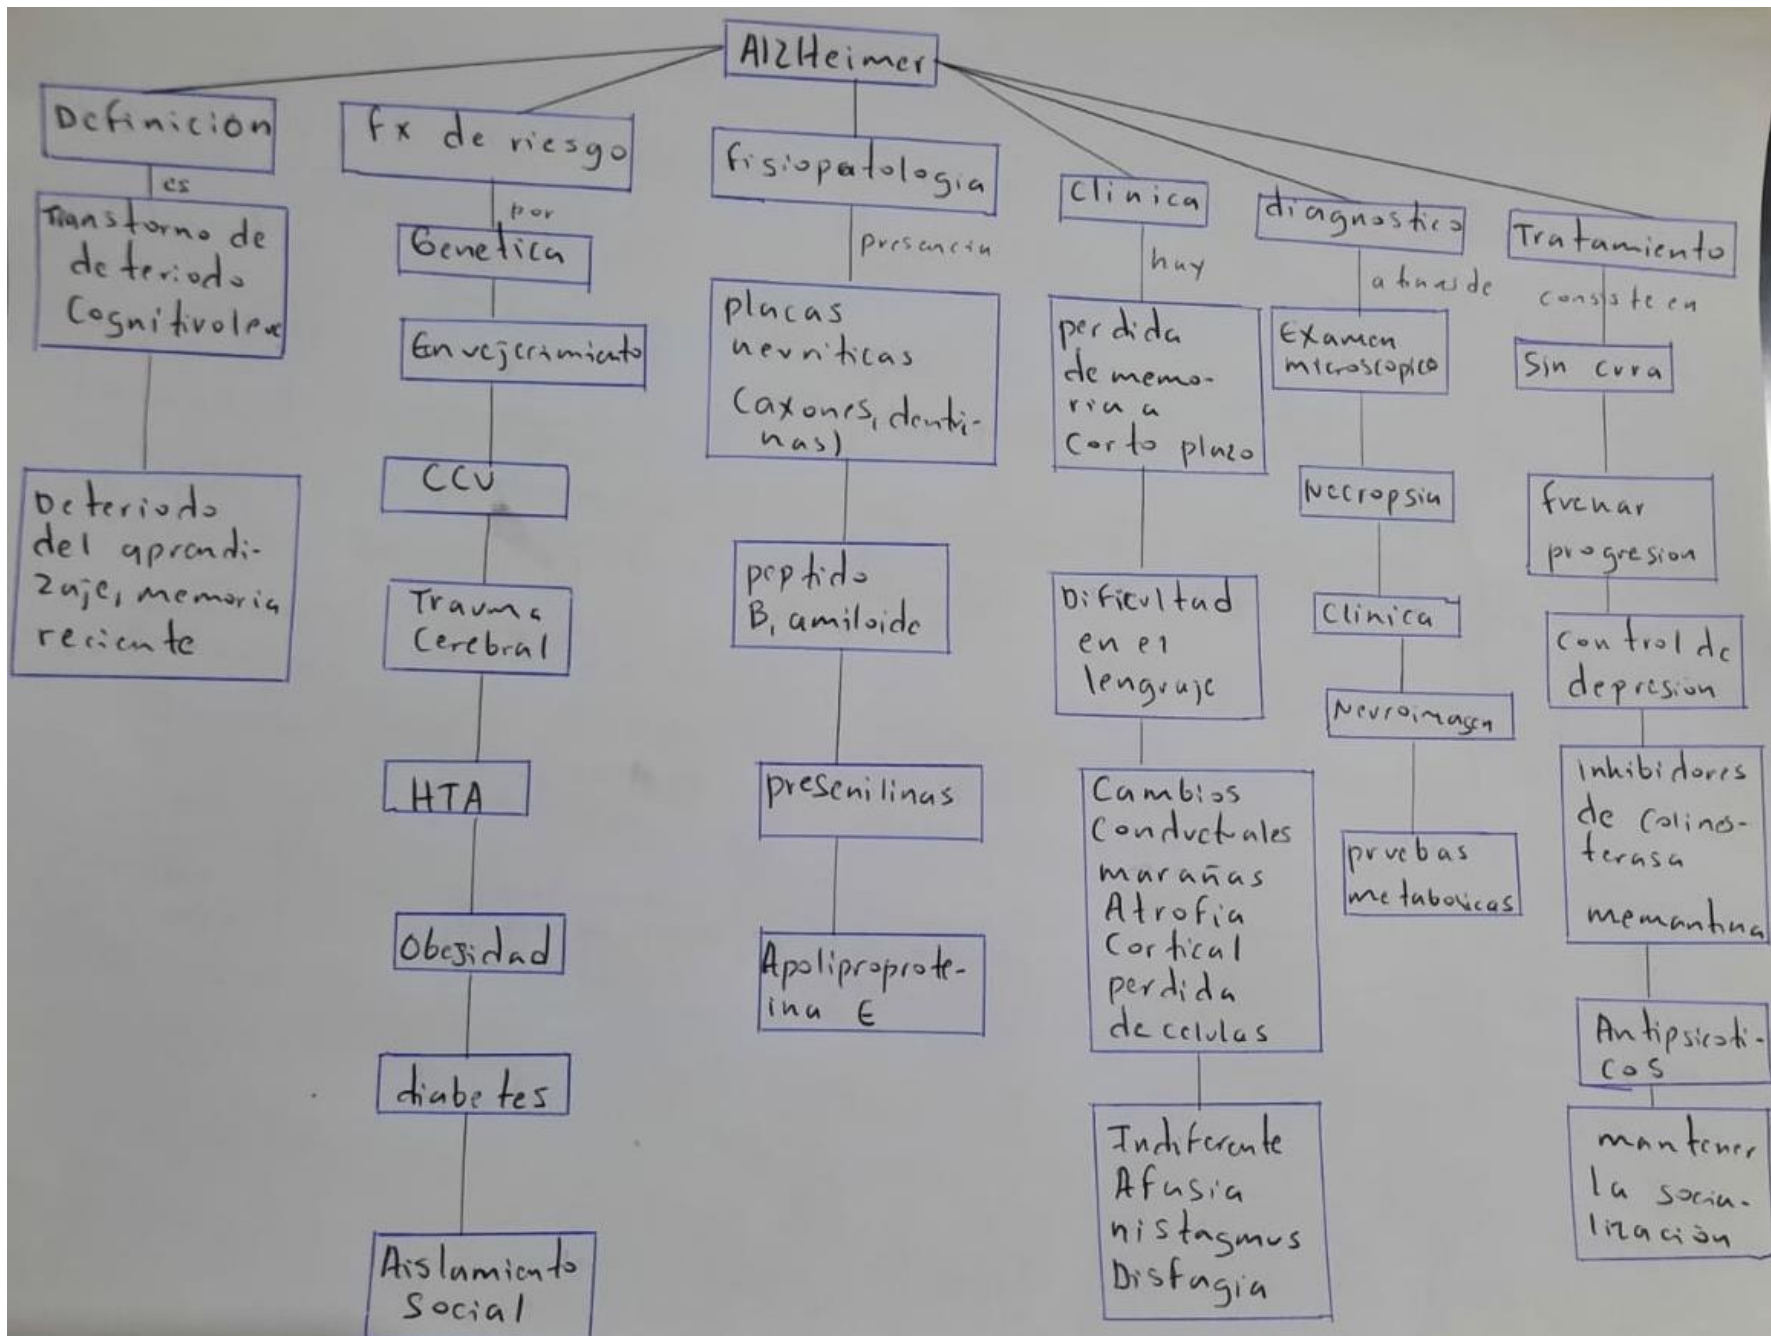 AlzHeimer
Definición
es
Transtorno de
deteriodo
Cognitivoleve
Deteriodo
del aprendi-
zaje, memoria
reciente
fx de riesgo
por
Genetica
Envejecimiento
CCV
Trauma
Cerebral
HTA
Obesidad
diabetes
Aislamiento
Social
fisiopatologia
presencia
placas
neuriticas
(axones, dentri-
nas)
peptido
B, amiloide
presenilinas
Apoliproprote-
ina E
Clinica
hay
perdida
de memo-
ria a
corto plazo
Dificultad
en el
lenguaje
Cambios
Conductuales
marañas
Atrofia
Cortical
perdida
de celulas
Indiferente
Afasia
nistagmus
Disfagia
diagnostico
a traves de
Examen
microscopico
Necropsia
Clinica
Neuroimagen
pruebas
metabolicas
Tratamiento
consiste en
Sin cura
frenar
progresion
control de
depresion
inhibidores
de colines-
terasa
memantina
Antipsicoti-
cos
mantener
la socia-
lización